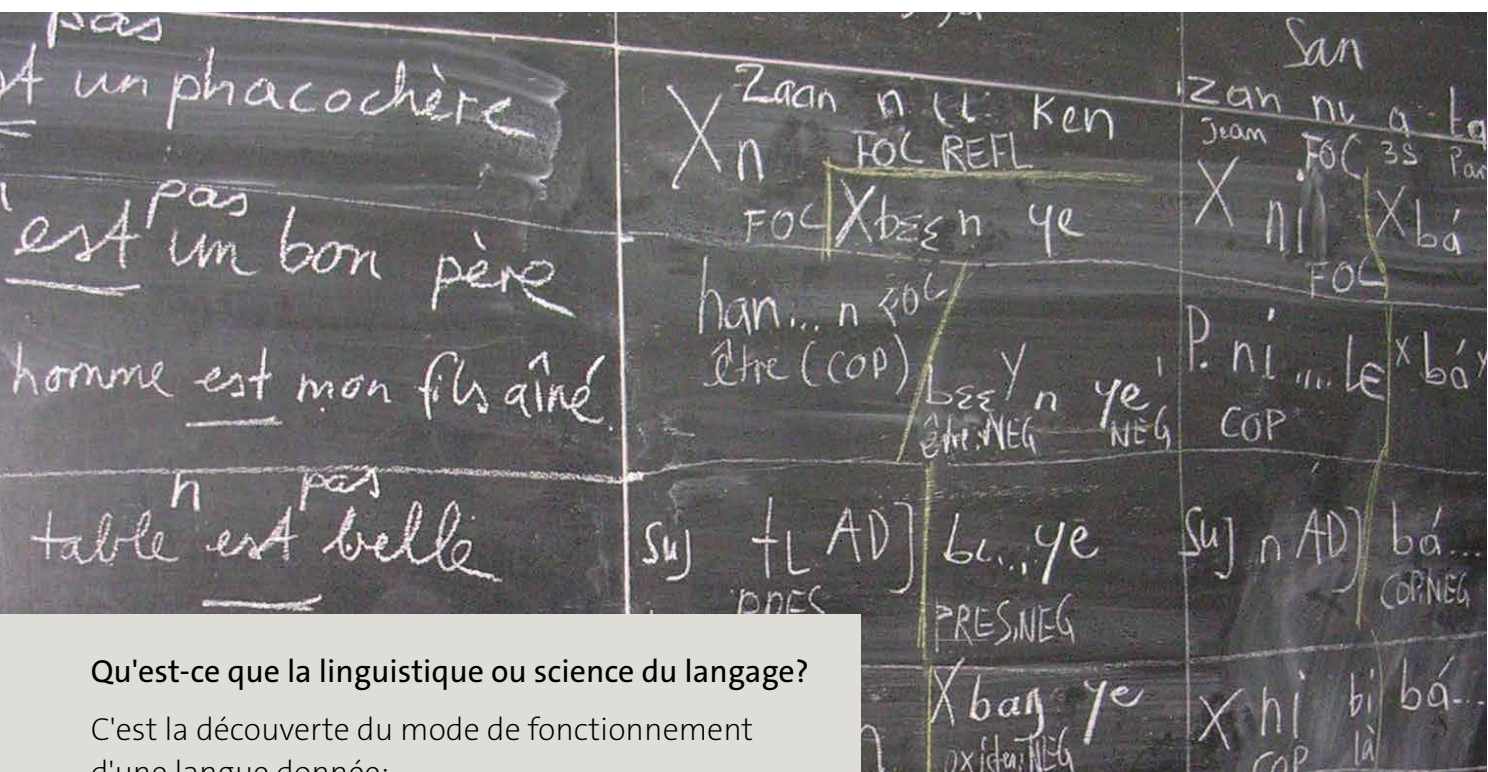 pas
un phacochère
pas
est un bon père
homme est mon fils aîné
n pas
table est belle
Zaan n Ken
X n FOC REFL
FOC X bɛɛ n ye
han... n FOC
être (COP)
bɛɛ Y n ye
être.NEG NEG
Suj tɩ ADJ bɩ...ye
PRES.NEG
X ban ye
San
Zan nɩ a
Jean FOC 3S
X ni X bá
FOC
P. ni .... lɛ X bá Y
COP
Suj n ADJ bá...
COP.NEG
X ni bi bá...
COP là
Qu'est-ce que la linguistique ou science du langage?
C'est la découverte du mode de fonctionnement
d'une langue donnée: